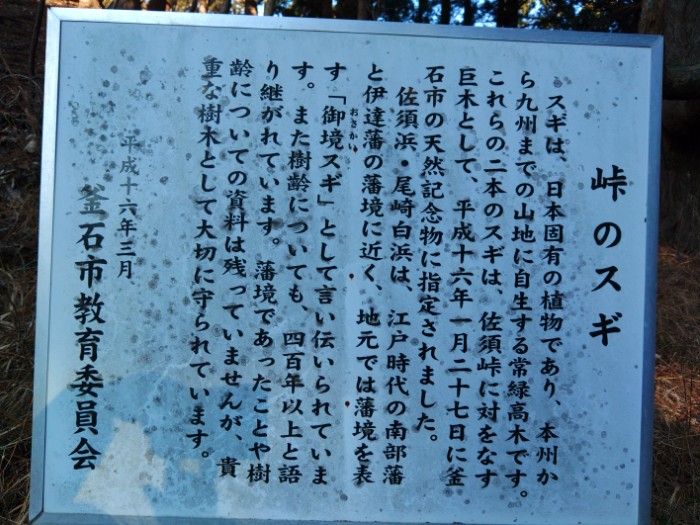 峠のスギ
スギは、日本固有の植物であり、本州か
ら九州までの山地に自生する常緑高木です。
これらの二本のスギは、佐須峠に対をなす
巨木として、平成十六年一月二十七日に釜
石市の天然記念物に指定されました。
佐須浜・尾崎白浜は、江戸時代の南部藩
と伊達藩の藩境に近く、地元では藩境を表
す「御境スギ」として言い伝いられていま
おさかい
す。また樹齢についても、四百年以上と語
り継がれています。藩境であったことや樹
齢についての資料は残っていませんが、貴
重な樹木として大切に守られています。
平成十六年三月
釜石市教育委員会